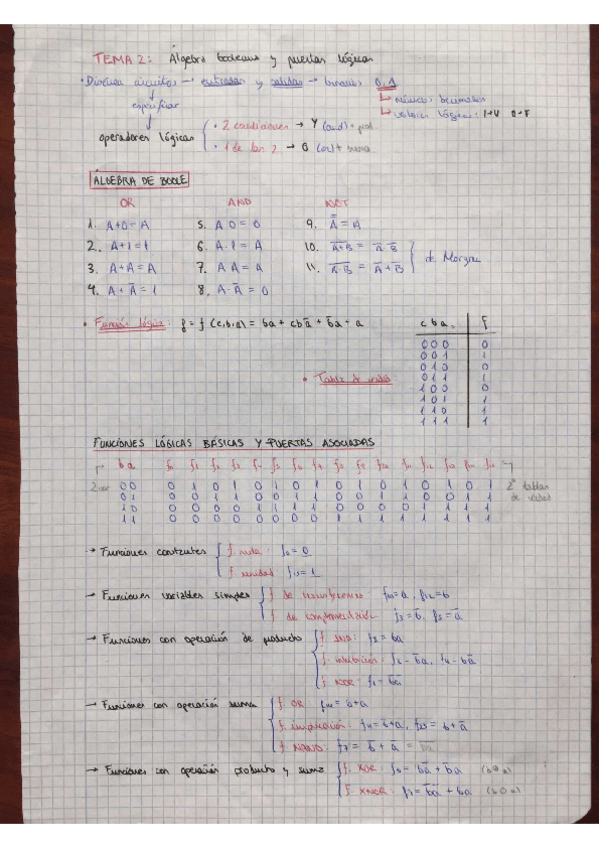 TEMA 2: Álgebra booleana y puertas lógicas
• Diseñar circuitos → entradas y salidas → binarios 0,1
↳ números binarios
especificar
↳ valores lógicos: 1→V 0→F
operadores lógicos
• 2 condiciones → Y (and) • prod.
• 1 de las 2 → O (or) + suma
ÁLGEBRA DE BOOLE
OR AND NOT
1. A+0=A 5. A·0=0 9. A̿=A
2. A+1=1 6. A·1=A 10. A̅+̅B̅ = A̅·B̅
3. A+A=A 7. A·A=A 11. A̅·̅B̅ = A̅+B̅
de Morgan
4. A+A̅=1 8. A·A̅=0
• Función lógica: f = f(c,b,a) = ba + cba̅ + b̅a
c b a f
0 0 0 0
0 0 1 1
0 1 0 0
• Tabla de verdad
0 1 1 1
1 0 0 0
1 0 1 1
1 1 0 1
1 1 1 1
FUNCIONES LÓGICAS BÁSICAS Y PUERTAS ASOCIADAS
b a f0 f1 f2 f3 f4 f5 f6 f7 f8 f9 f10 f11 f12 f13 f14 f15
0 0 0 1 0 1 0 1 0 1 0 1 0 1 0 1 0 1
0 1 0 0 1 1 0 0 1 1 0 0 1 1 0 0 1 1
1 0 0 0 0 0 1 1 1 1 0 0 0 0 1 1 1 1
1 1 0 0 0 0 0 0 0 0 1 1 1 1 1 1 1 1
tablas de verdad
→ Funciones constantes
f. nula: f0 = 0
f. unidad: f15 = 1
→ Funciones variables simples
f. de transferencia: f10=a, f12=b
f. de complementación: f3=b̅, f5=a̅
→ Funciones con operación de producto
f. AND: f8=ba
f. inhibición: f2=b̅a, f4=ba̅
f. NOR: f1=b̅a̅
→ Funciones con operación suma
f. OR: f14=b+a
f. implicación: f11=b̅+a, f13=b+a̅
f. NAND: f7 = b̅+a̅
→ Funciones con operación producto y suma
f. XOR: f6 = ba̅ + b̅a (b⊕a)
f. XNOR: f9 = b̅a̅ + ba (b⊙a)